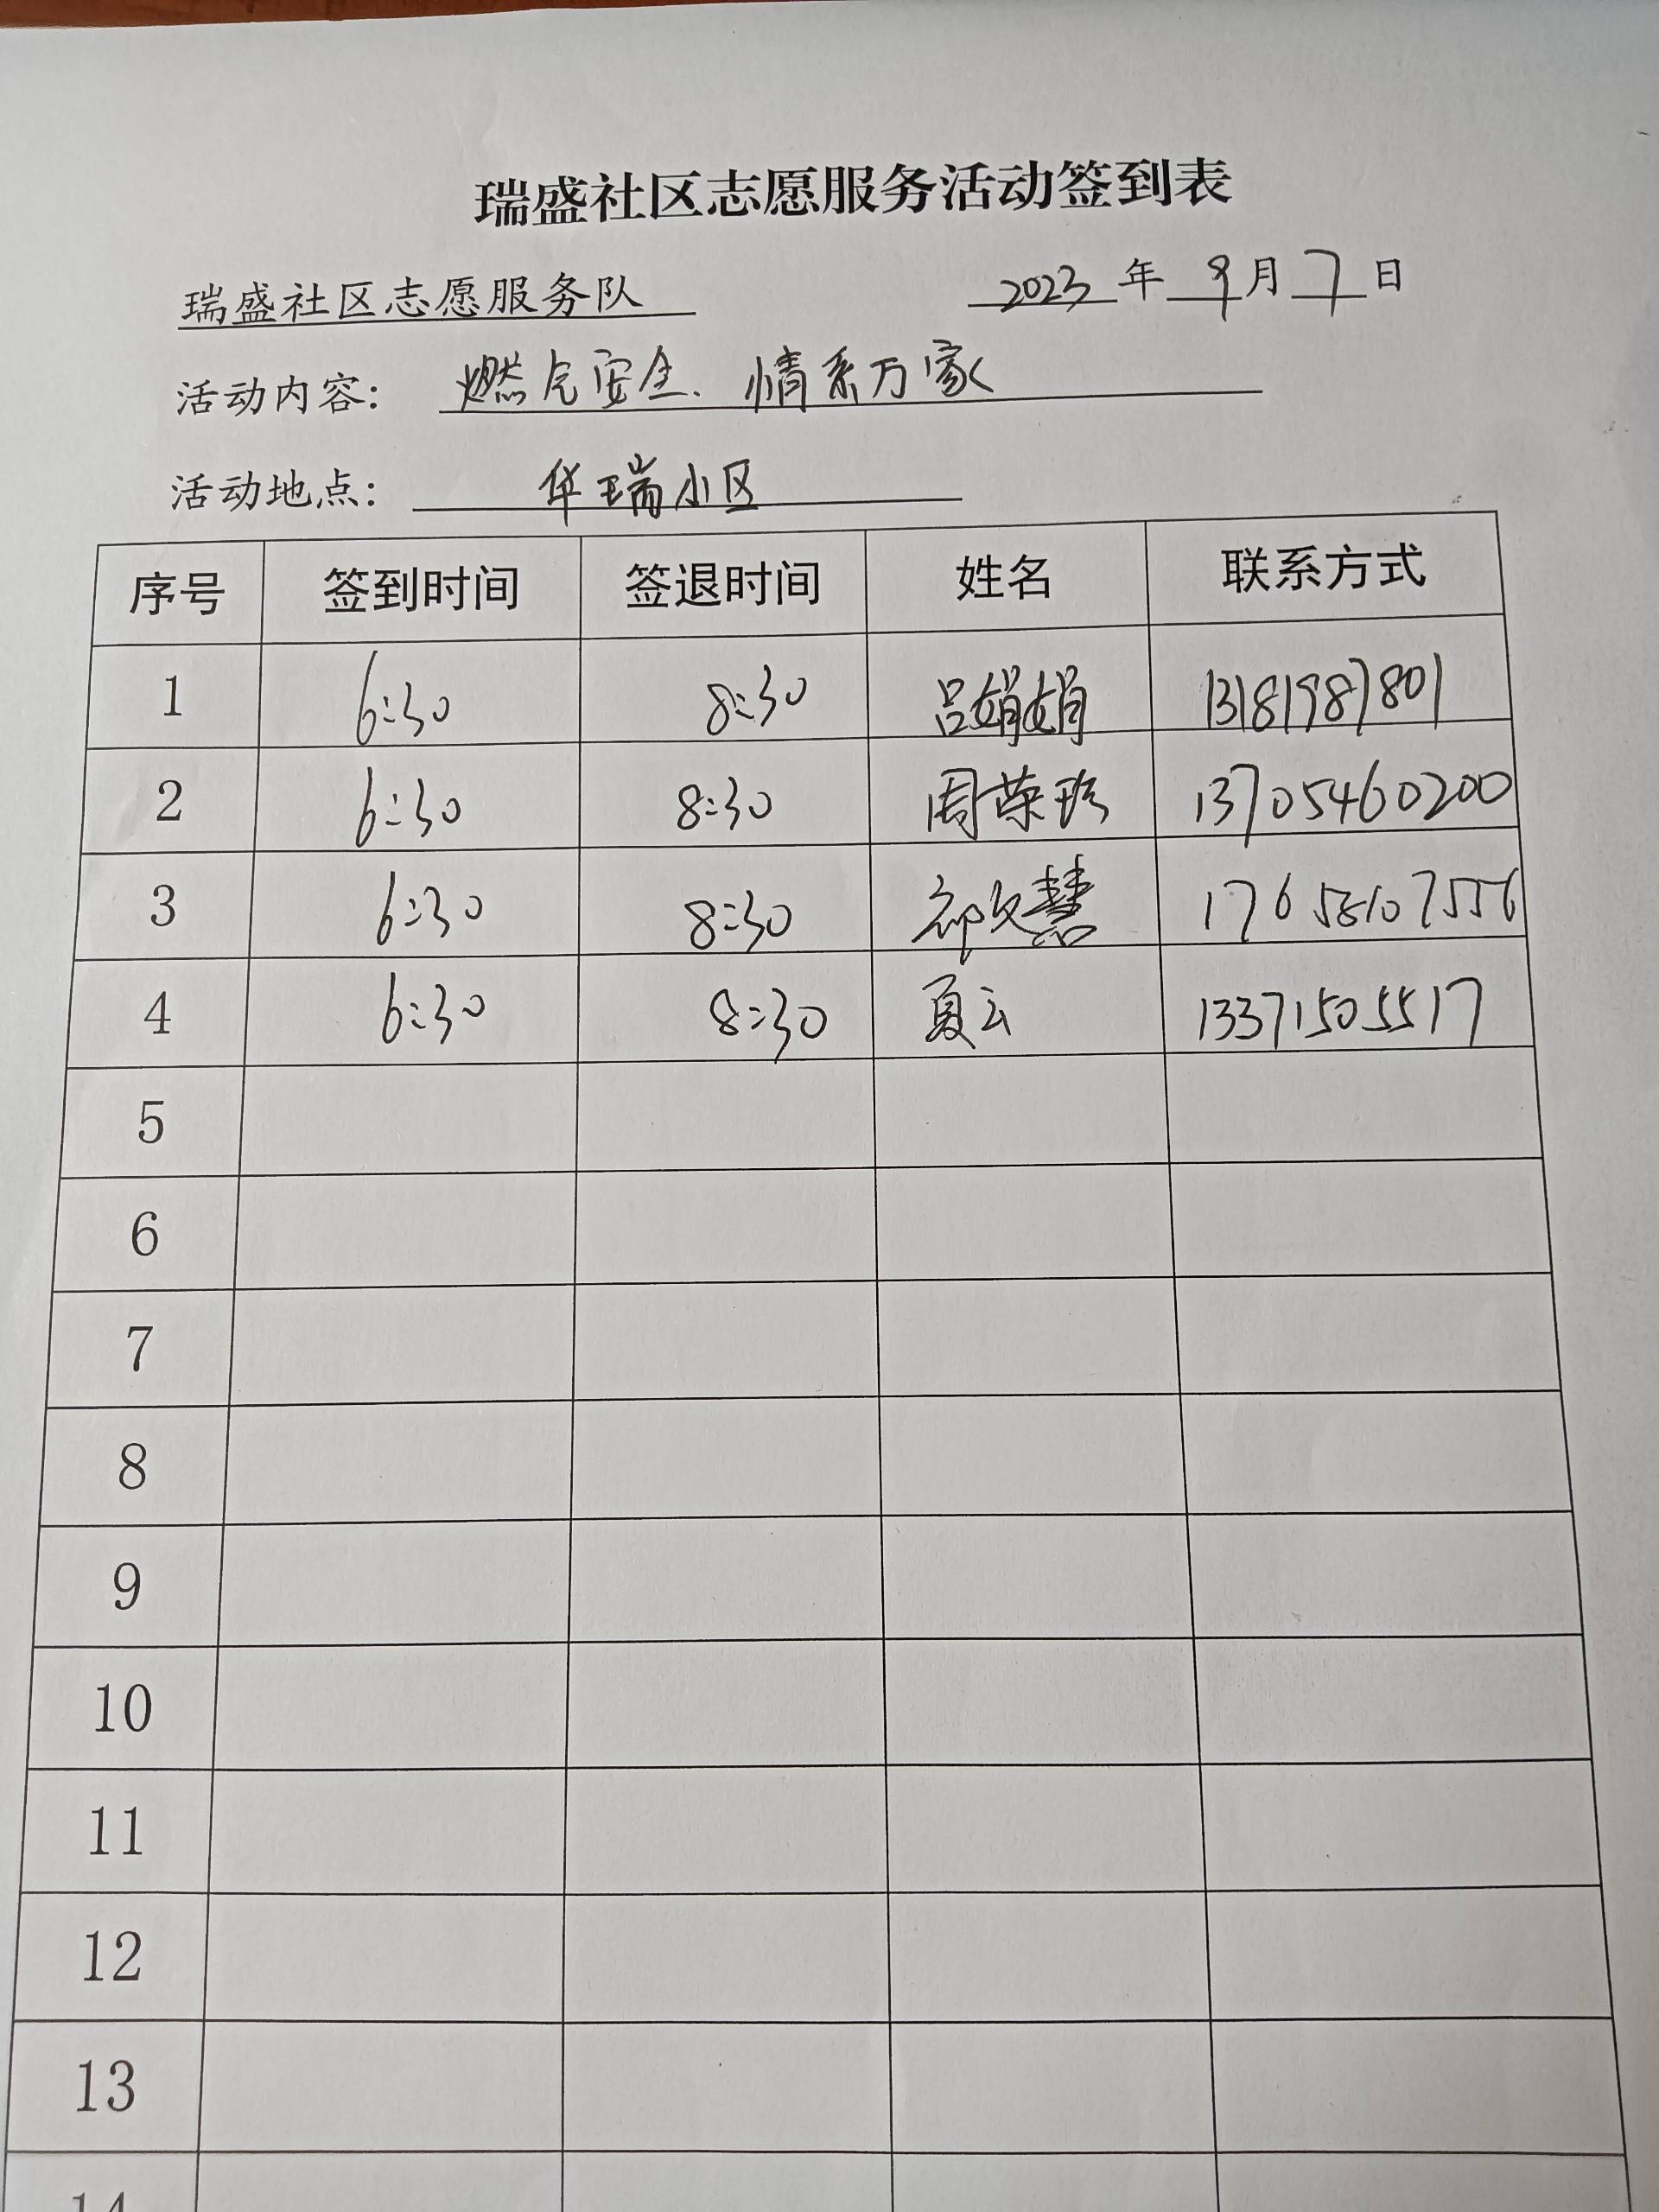 瑞盛社区志愿服务活动签到表
瑞盛社区志愿服务队 2023年9月7日
活动内容: 燃气安全、情系万家
活动地点: 华瑞小区
序号 签到时间 签退时间 姓名 联系方式
1 6:30 8:30 吕娟娟 13181987801
2 6:30 8:30 周荣珍 13705460200
3 6:30 8:30 祁文慧
4 6:30 8:30 夏云 13371505517
5
6
7
8
9
10
11
12
13
14